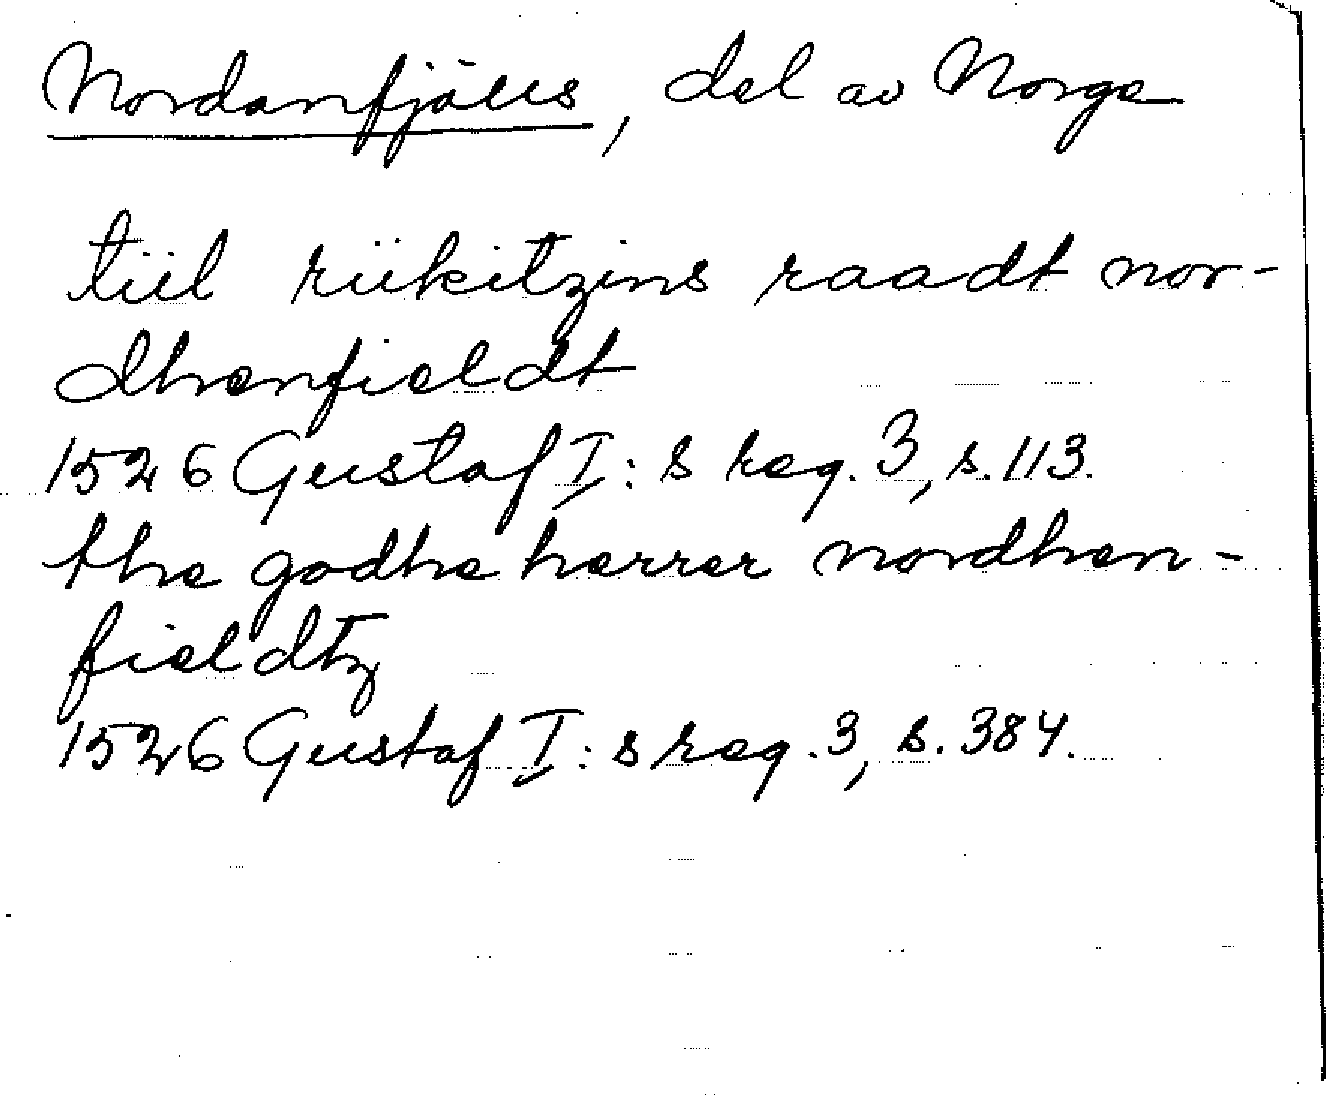 Nordanfjälls, del av Norge
tiil riikitzins raadt nor-
dhenfieldt
1526 Gustaf I:s reg. 3, s. 113.
the godhe herrer nordhen-
fieldtz
1526 Gustaf I:s reg. 3, s. 384.